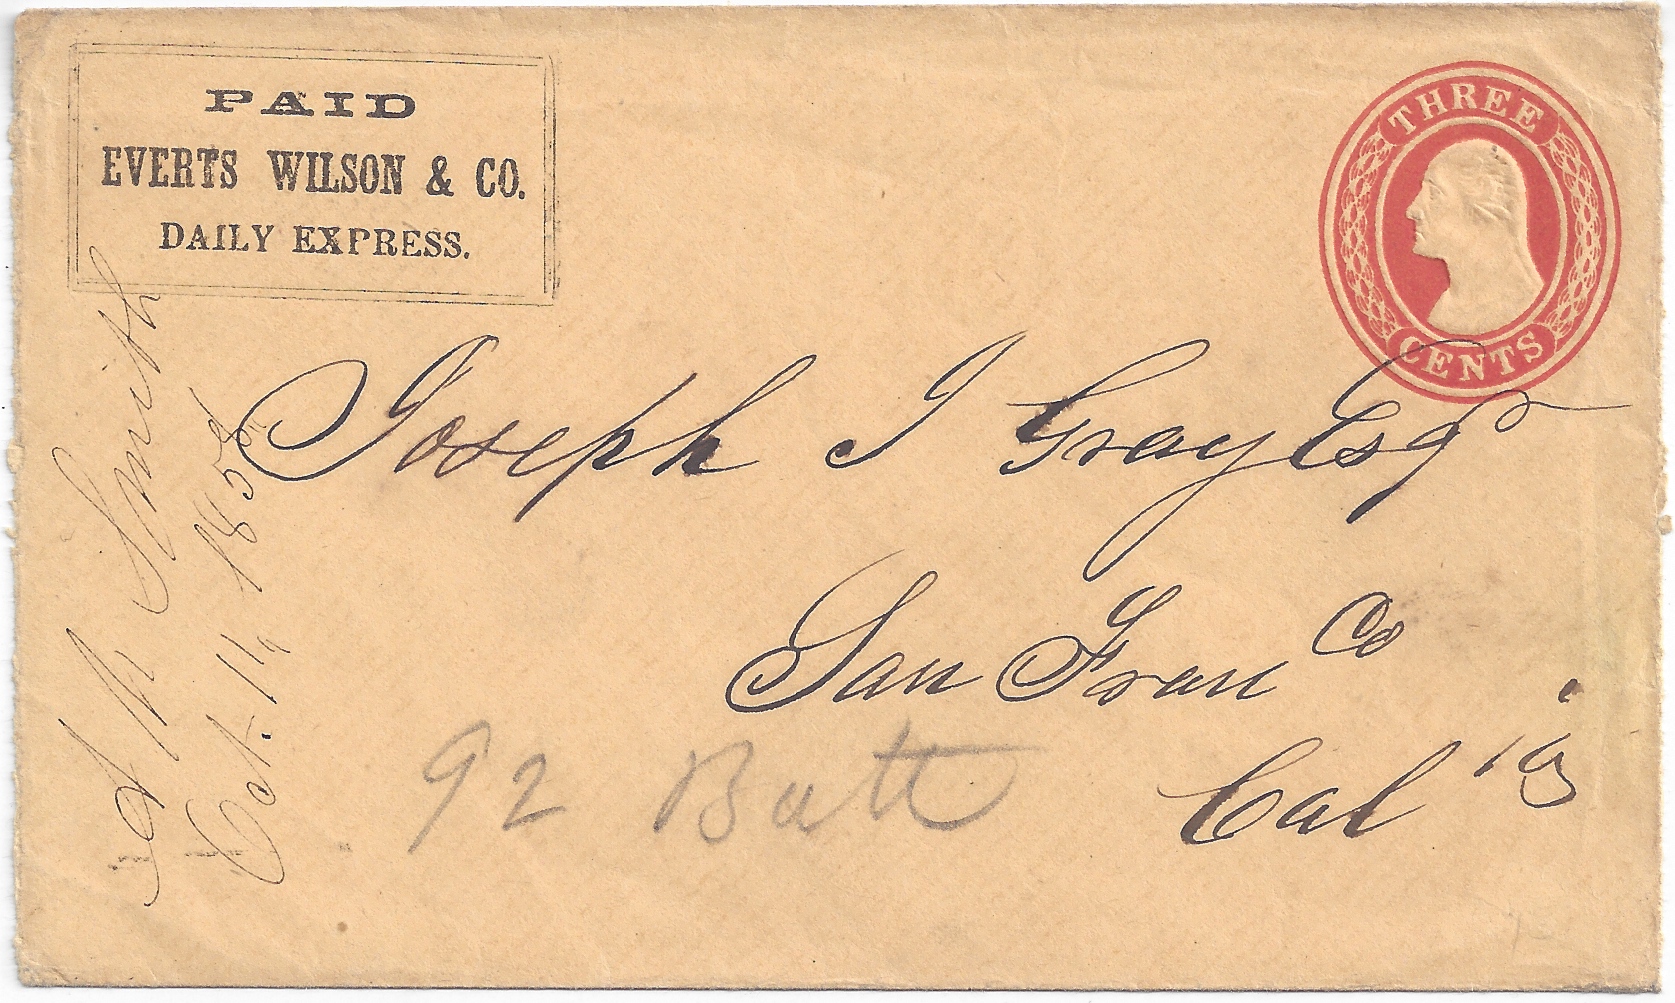 PAID
EVERTS WILSON & CO.
DAILY EXPRESS.
THREE
CENTS
Joseph J Gray Esqr
San Fran Co
Cal
92 Batt
A M Smith
Oct. 11, 1858